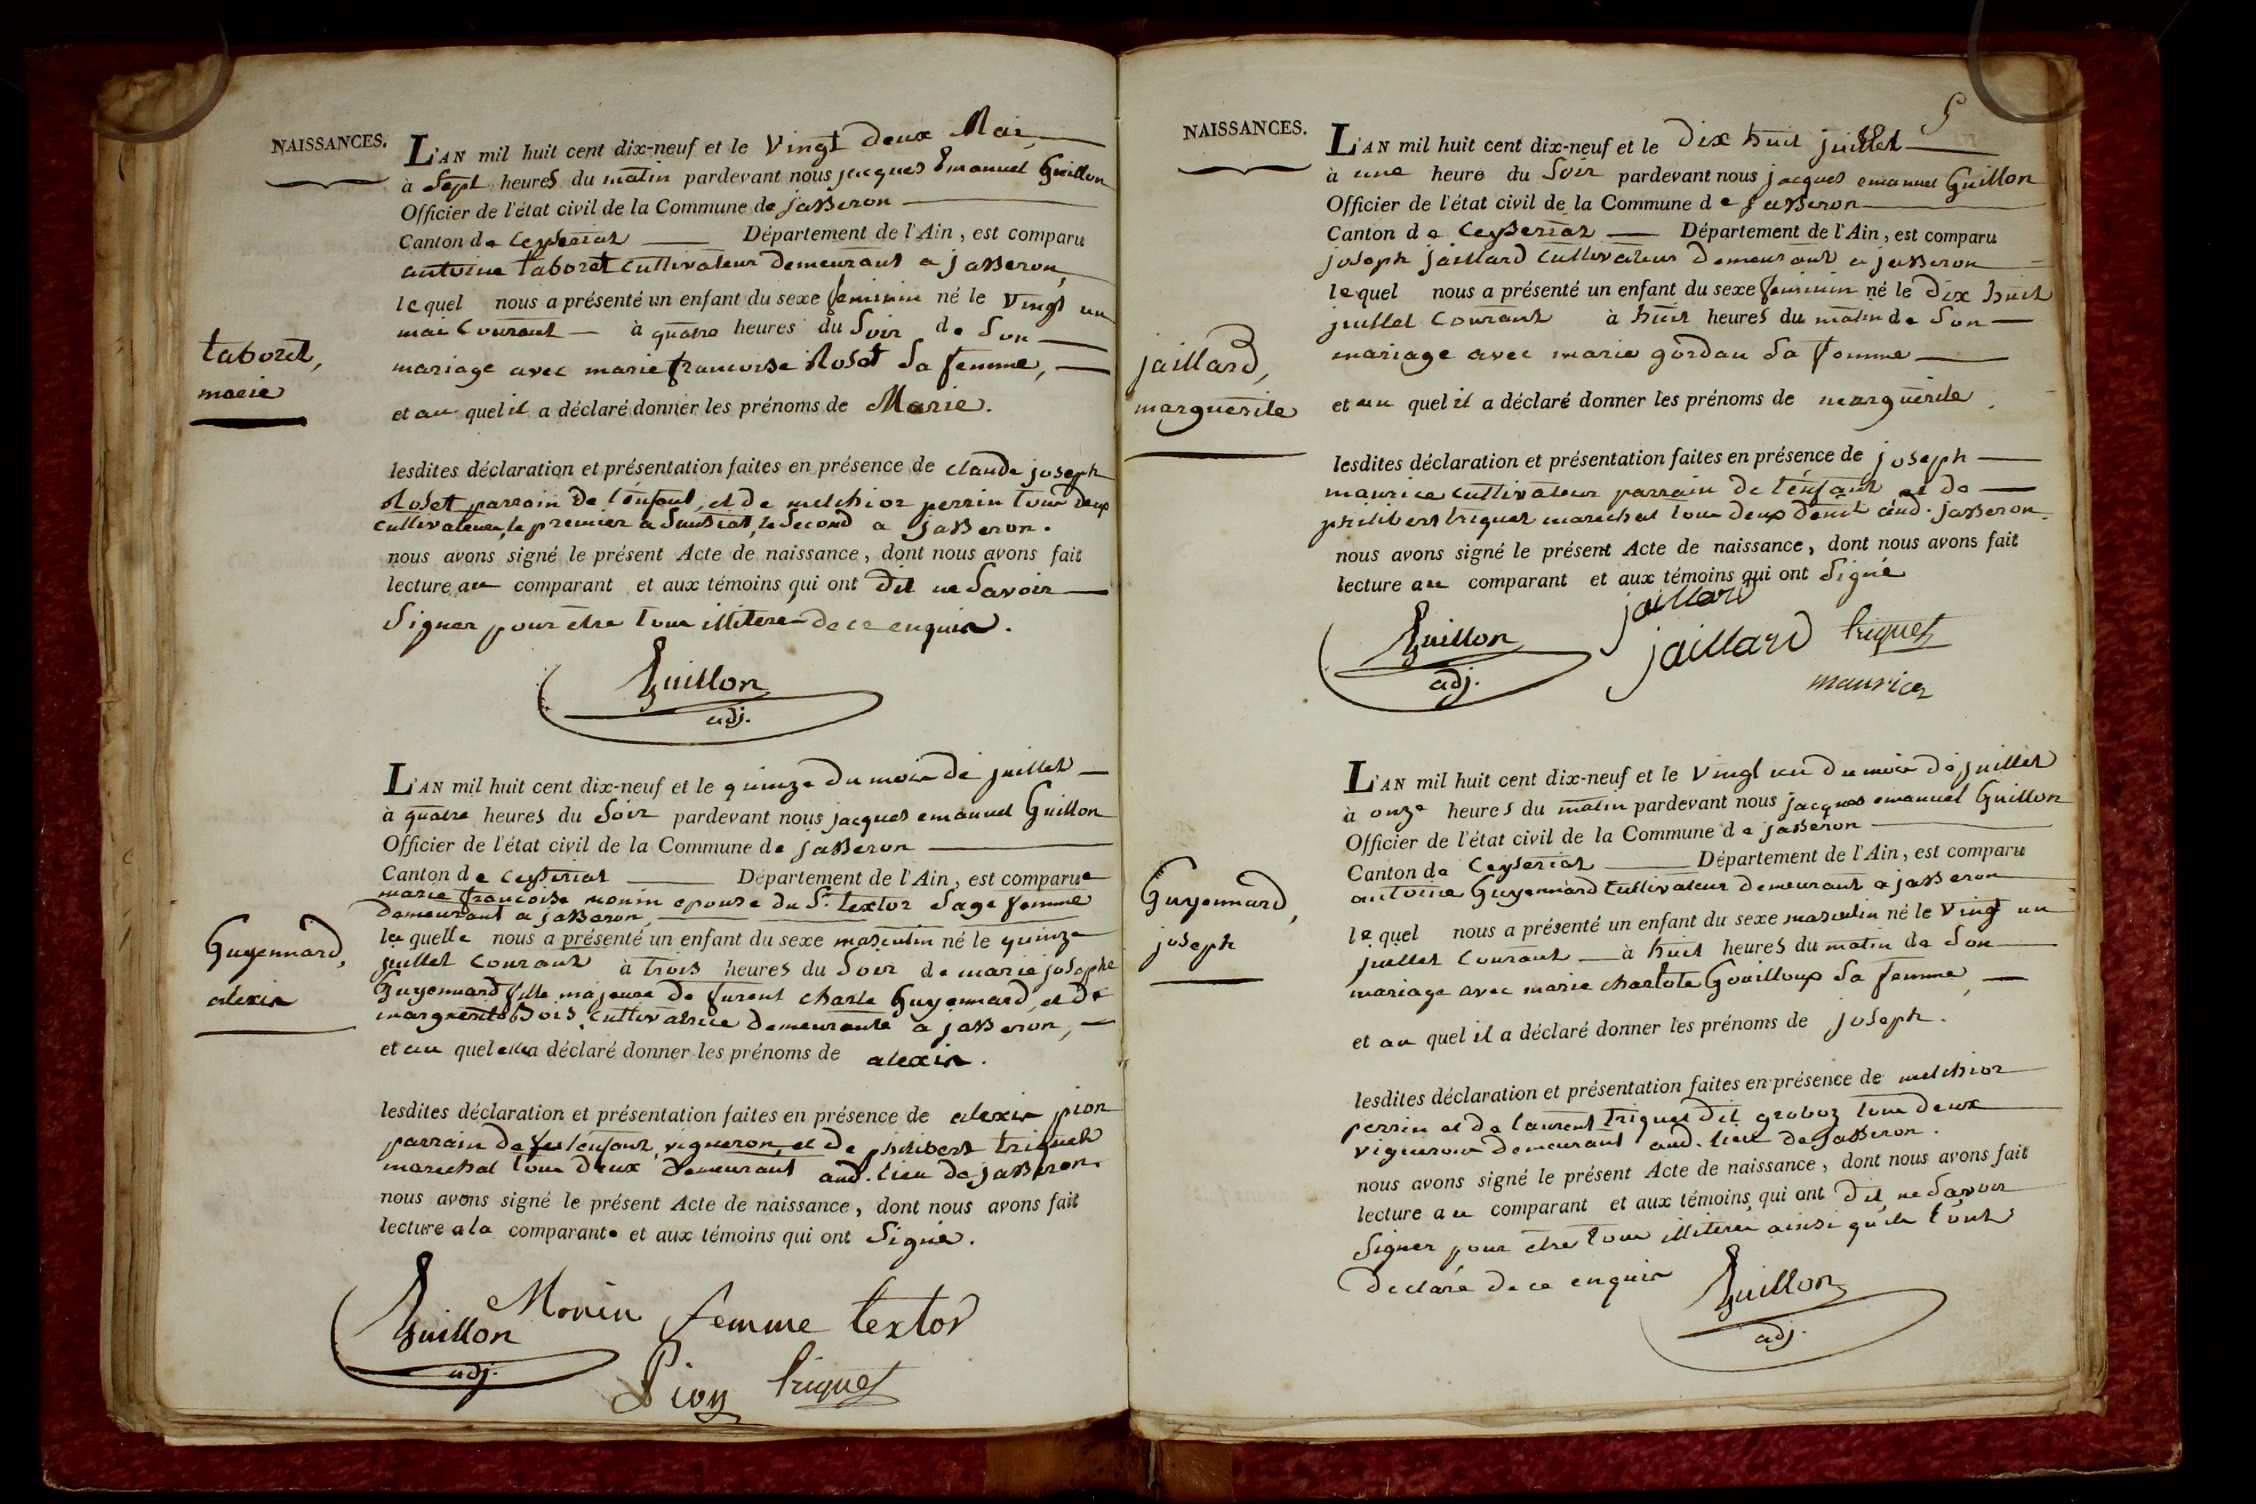 NAISSANCES.
L'AN mil huit cent dix-neuf et le Vingt deux Mai
à Sept heures du matin pardevant nous jacques Emanuel Guillon
Officier de l'état civil de la Commune de jasseron
Canton de Ceyseriat Département de l'Ain, est comparu
antoine taboret cultivateur demeurant a jasseron,
lequel nous a présenté un enfant du sexe feminin né le Vingt un
mai Courant à quatre heures du Soir de Son
mariage avec marie francoise Roset Sa femme,
et au quel il a déclaré donner les prénoms de Marie.
taboret,
marie
lesdites déclaration et présentation faites en présence de claude joseph
Roset parrain de l'enfant, et de melchior perrin tous deux
cultivateurs, le premier a Sanciat, le Second a jasseron.
nous avons signé le présent Acte de naissance, dont nous avons fait
lecture au comparant et aux témoins qui ont dit ne Savoir
Signer pour etre tous illiteres de ce enquis.
Guillon
adj.
L'AN mil huit cent dix-neuf et le quinze du mois de juillet
à quatre heures du Soir pardevant nous jacques emanuel Guillon
Officier de l'état civil de la Commune de jasseron
Canton de Ceyseriat Département de l'Ain, est comparue
marie francoise monin epouse du Sr. textor Sage femme
demeurant a jasseron,
laquelle nous a présenté un enfant du sexe masculin né le quinze
juillet Courant à trois heures du Soir de marie josephe
Guyennard fille majeure de furent charle Guyennard, et de
marguerite Bois, cultivatrice demeurante a jasseron,
et au quel elle a déclaré donner les prénoms de alexis.
Guyennard,
alexis
lesdites déclaration et présentation faites en présence de alexis pion
parrain de l'enfant, vigneron, et de philibert triquet
marechal tous deux demeurant aud. lieu de jasseron.
nous avons signé le présent Acte de naissance, dont nous avons fait
lecture a la comparante et aux témoins qui ont Signé.
Guillon
adj.
Monin femme textor
Pion triquet
5
NAISSANCES.
L'AN mil huit cent dix-neuf et le dix huit juillet
à une heure du Soir pardevant nous jacques emanuel Guillon
Officier de l'état civil de la Commune de jasseron
Canton de Ceyseriat Département de l'Ain, est comparu
joseph jaillard cultivateur demeurant a jasseron
lequel nous a présenté un enfant du sexe feminin né le dix huit
juillet Courant à huit heures du matin de Son
mariage avec marie gordan Sa femme
et au quel il a déclaré donner les prénoms de marguerite.
jaillard,
marguerite
lesdites déclaration et présentation faites en présence de joseph
maurice cultivateur parrain de l'enfant et de
philibert triquet marechal tous deux aud. jasseron.
nous avons signé le présent Acte de naissance, dont nous avons fait
lecture au comparant et aux témoins qui ont Signé
jaillard
Guillon
adj.
jaillard triquet
maurice
L'AN mil huit cent dix-neuf et le Vingt un du mois de juillet
à onze heures du matin pardevant nous jacques emanuel Guillon
Officier de l'état civil de la Commune de jasseron
Canton de Ceyseriat Département de l'Ain, est comparu
antoine Guyennard cultivateur demeurant a jasseron
lequel nous a présenté un enfant du sexe masculin né le Vingt un
juillet Courant à huit heures du matin de Son
mariage avec marie charlote Gouilloux Sa femme,
et au quel il a déclaré donner les prénoms de joseph.
Guyennard,
joseph
lesdites déclaration et présentation faites en présence de melchior
perrin et de laurent triquet dit groboz tous deux
vignerons demeurant aud. lieu de jasseron.
nous avons signé le présent Acte de naissance, dont nous avons fait
lecture au comparant et aux témoins qui ont dit ne Savoir
Signer pour etre tous illiteres ainsi qu'ils l'ont
declaré de ce enquis
Guillon
adj.